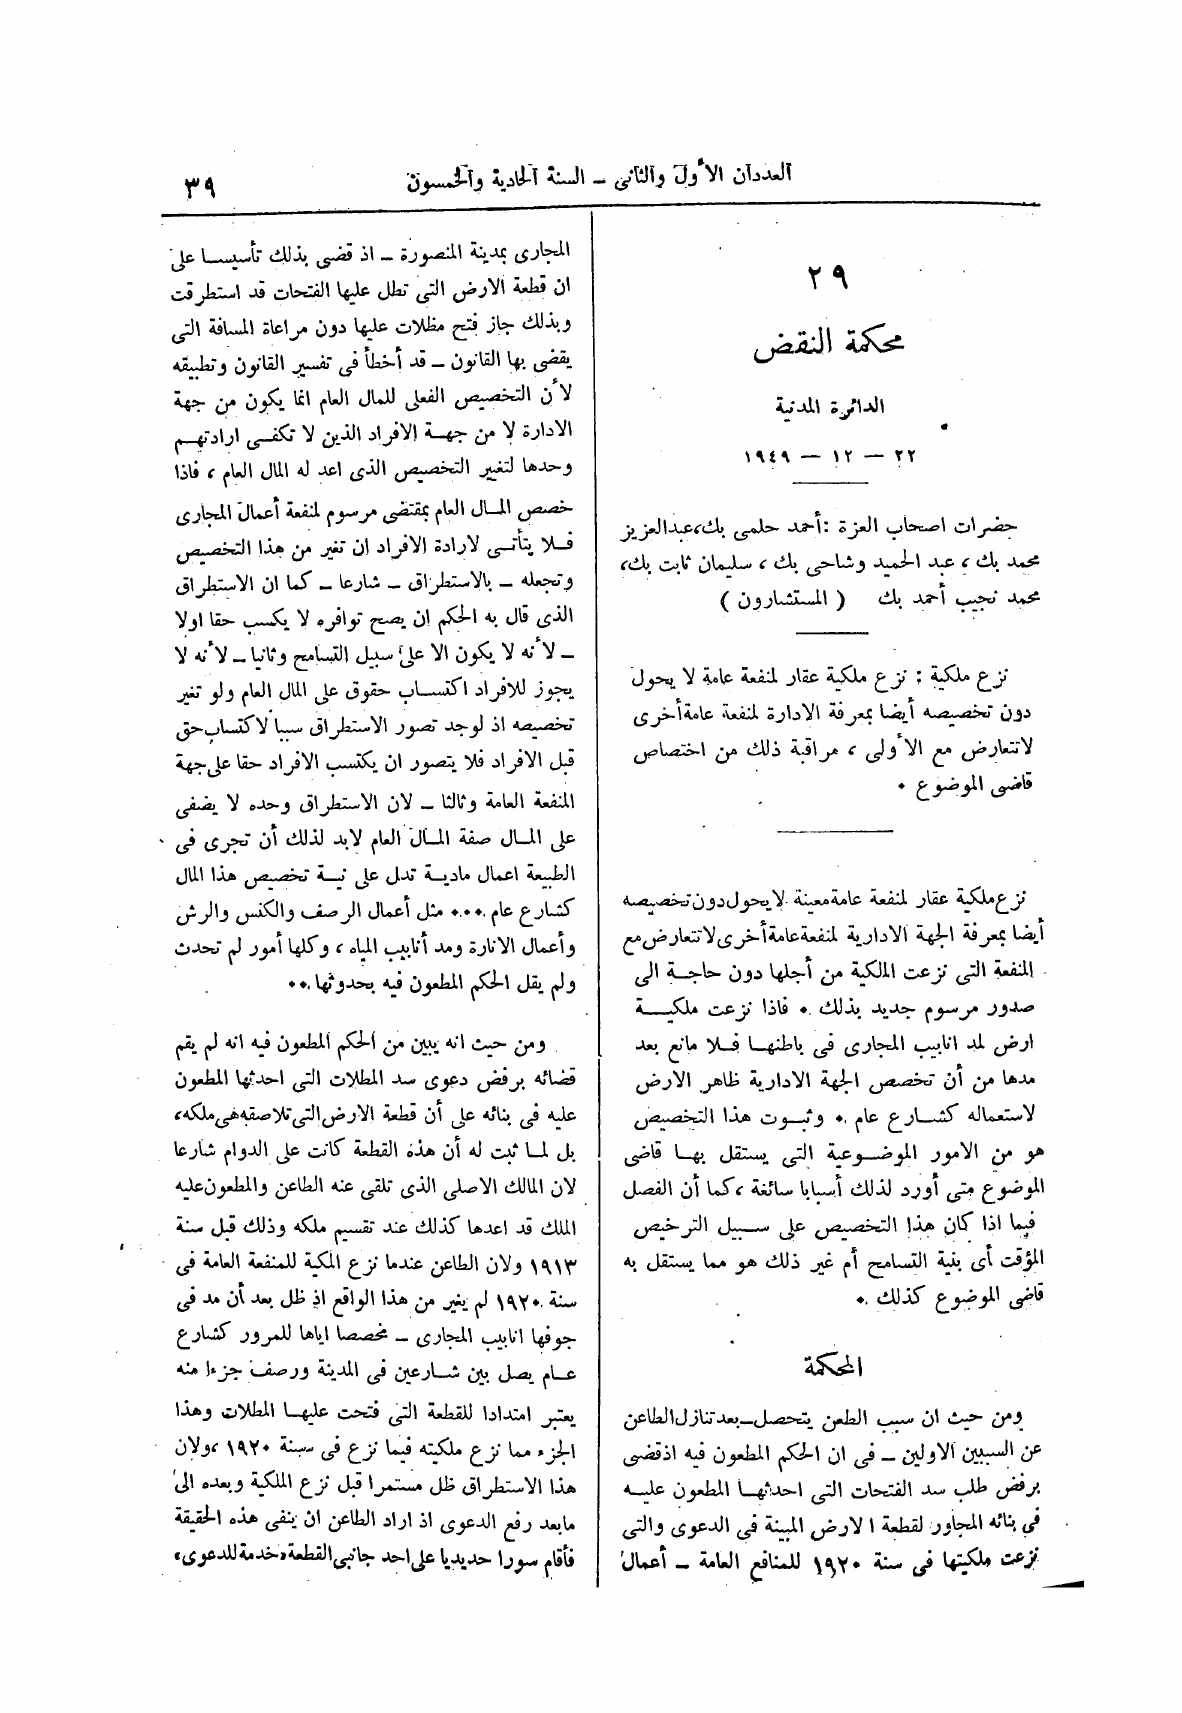 العددان الأول والثانى – السنة الحادية والخمسون
٣٩
٢٩
محكمة النقض
الدائرة المدنية
٢٢ – ١٢ – ١٩٤٩
حضرات اصحاب العزة : أحمد حلمى بك، عبدالعزيز
محمد بك، عبد الحميد وشاحى بك، سليمان ثابت بك،
محمد نجيب أحمد بك ( المستشارون )
نزع ملكية : نزع ملكية عقار لمنفعة عامة لا يحول
دون تخصيصه أيضا بمعرفة الادارة لمنفعة عامة أخرى
لاتتعارض مع الأولى، مراقبة ذلك من اختصاص
قاضى الموضوع .
نزع ملكية عقار لمنفعة عامة معينة لايحول دون تخصيصه
أيضا بمعرفة الجهة الادارية لمنفعة عامة أخرى لاتتعارض مع
المنفعة التى نزعت المالكية من أجلها دون حاجة الى
صدور مرسوم جديد بذلك . فاذا نزعت ملكية
ارض لمد انابيب المجارى فى باطنها فلا مانع بعد
مدها من أن تخصص الجهة الادارية ظاهر الارض
لاستعماله كشارع عام . وثبوت هذا التخصيص
هو من الامور الموضوعية التى يستقل بها قاضى
الموضوع متى أورد لذلك أسبابا سائغة، كما أن الفصل
فيما اذا كان هذا التخصيص على سبيل الترخيص
المؤقت أى بنية التسامح أم غير ذلك هو مما يستقل به
قاضى الموضوع كذلك .
المحكمة
ومن حيث ان سبب الطعن يتحصل – بعد تنازل الطاعن
عن السببين الاولين – فى ان الحكم المطعون فيه اذ قضى
برفض طلب سد الفتحات التى احدثها المطعون عليه
فى بنائه المجاور لقطعة الارض المبينة فى الدعوى والتى
نزعت ملكيتها فى سنة ١٩٢٠ للمنافع العامة – أعمال
المجارى بمدينة المنصورة – اذ قضى بذلك تأسيسا على
ان قطعة الارض التى تطل عليها الفتحات قد استطرقت
وبذلك جاز فتح مطلات عليها دون مراعاة المسافة التى
يقضى بها القانون – قد أخطأ فى تفسير القانون وتطبيقه
لأن التخصيص الفعلى للمال العام انما يكون من جهة
الادارة لا من جهة الافراد الذين لا تكفى ارادتهم
وحدها لتغيير التخصيص الذى اعد له المال العام، فاذا
خصص المال العام بمقتضى مرسوم لمنفعة أعمال المجارى
فلا يتأتى لارادة الافراد ان تغير من هذا التخصيص
وتجعله – بالاستطراق – شارعا – كما ان الاستطراق
الذى قال به الحكم ان يصح توافره لا يكسب حقا اولا
– لأنه لا يكون الا على سبيل التسامح وثانيا – لأنه لا
يجوز للافراد اكتساب حقوق على المال العام ولو تغير
تخصيصه اذ لوجد تصور الاستطراق سببا لاكتساب حق
قبل الافراد فلا يتصور ان يكتسب الافراد حقا على جهة
المنفعة العامة وثالثا – لان الاستطراق وحده لا يضفى
على المال صفة المال العام لابد لذلك أن تجرى فى
الطبيعة اعمال مادية تدل على نية تخصيص هذا المال
كشارع عام ... مثل أعمال الرصف والكنس والرش
وأعمال الانارة ومد أنابيب المياه، وكلها أمور لم تحدث
ولم يقل الحكم المطعون فيه بحدوثها ..
ومن حيث انه يبين من الحكم المطعون فيه انه لم يقم
قضائه برفض دعوى سد المطلات التى احدثها المطعون
عليه فى بنائه على أن قطعة الارض التى تلاصقه هى ملكه،
بل لما ثبت له أن هذه القطعة كانت على الدوام شارعا
لان المالك الاصلى الذى تلقى عنه الطاعن والمطعون عليه
الملك قد اعدها كذلك عند تقسيم ملكه وذلك قبل سنة
١٩١٣ ولان الطاعن عندما نزع المكية للمنفعة العامة فى
سنة ١٩٢٠ لم يغير من هذا الواقع اذ ظل بعد أن مد فى
جوفها انابيب المجارى – مخصصا اياها للمرور كشارع
عام يصل بين شارعين فى المدينة ورصف جزءا منه
يعتبر امتدادا للقطعة التى فتحت عليها المطلات وهذا
الجزء مما نزع ملكيته فيما نزع فى سنة ١٩٢٠، ولان
هذا الاستطراق ظل مستمرا قبل نزع الملكية وبعده الى
مابعد رفع الدعوى اذ اراد الطاعن ان ينفى هذه الحقيقة
فأقام سورا حديديا على احد جانبى القطعة «خدمة للدعوى»